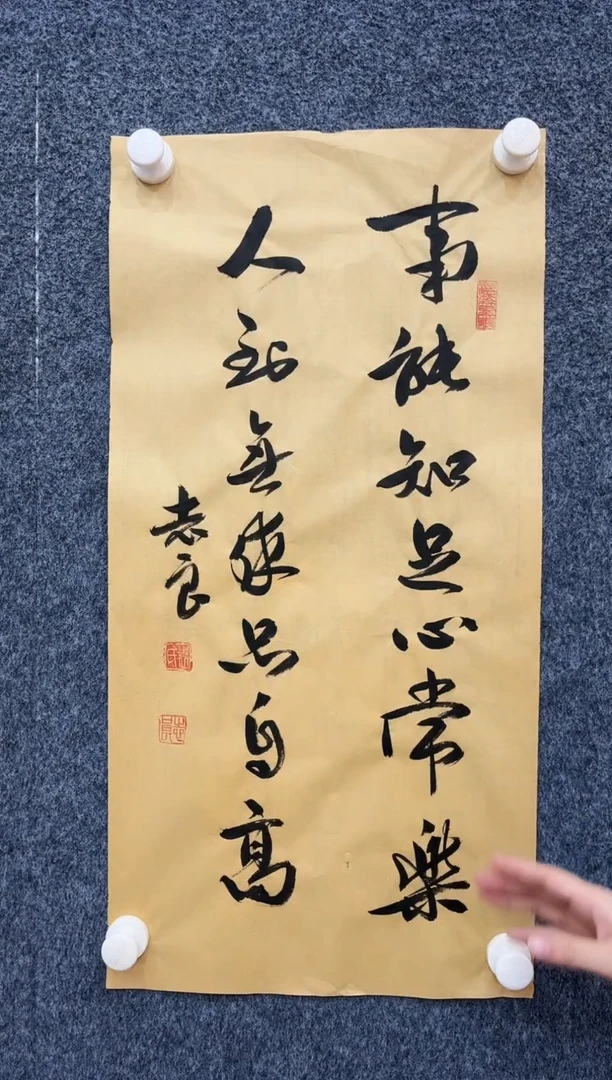 事能知足心常樂
人到無求品自高
志良